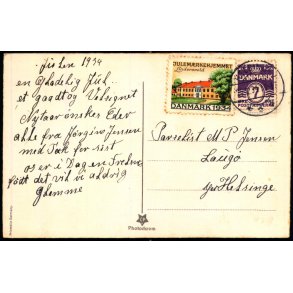 Julen 1934
en Glædelig Jul
et godt og Velsignet
Nytaar ønskes Eder
alle fra Jørgine Jensen
med Tak for sidst
os er i Dag en Frelser
født det vil vi aldrig
Glemme
JULEMÆRKEHJEMMET
DANMARK 1934
DANMARK
7
Parcelist M P Jensen
Laugø
pr Helsinge
Photochrom